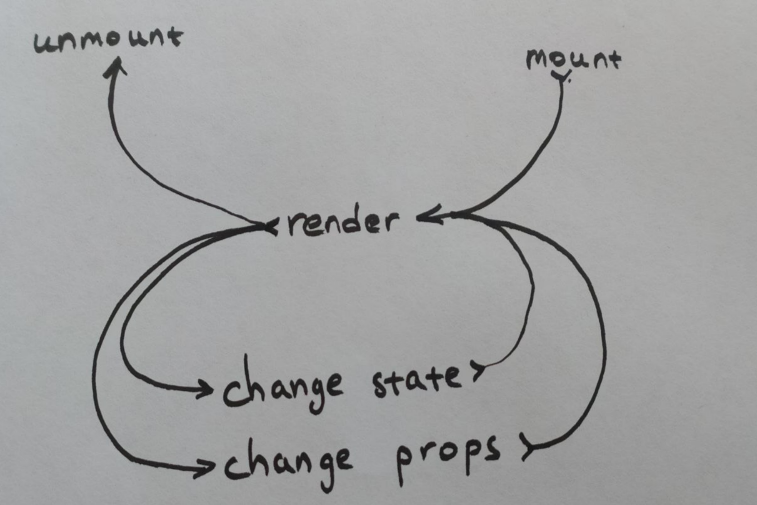 unmount
mount
render
change state
change props